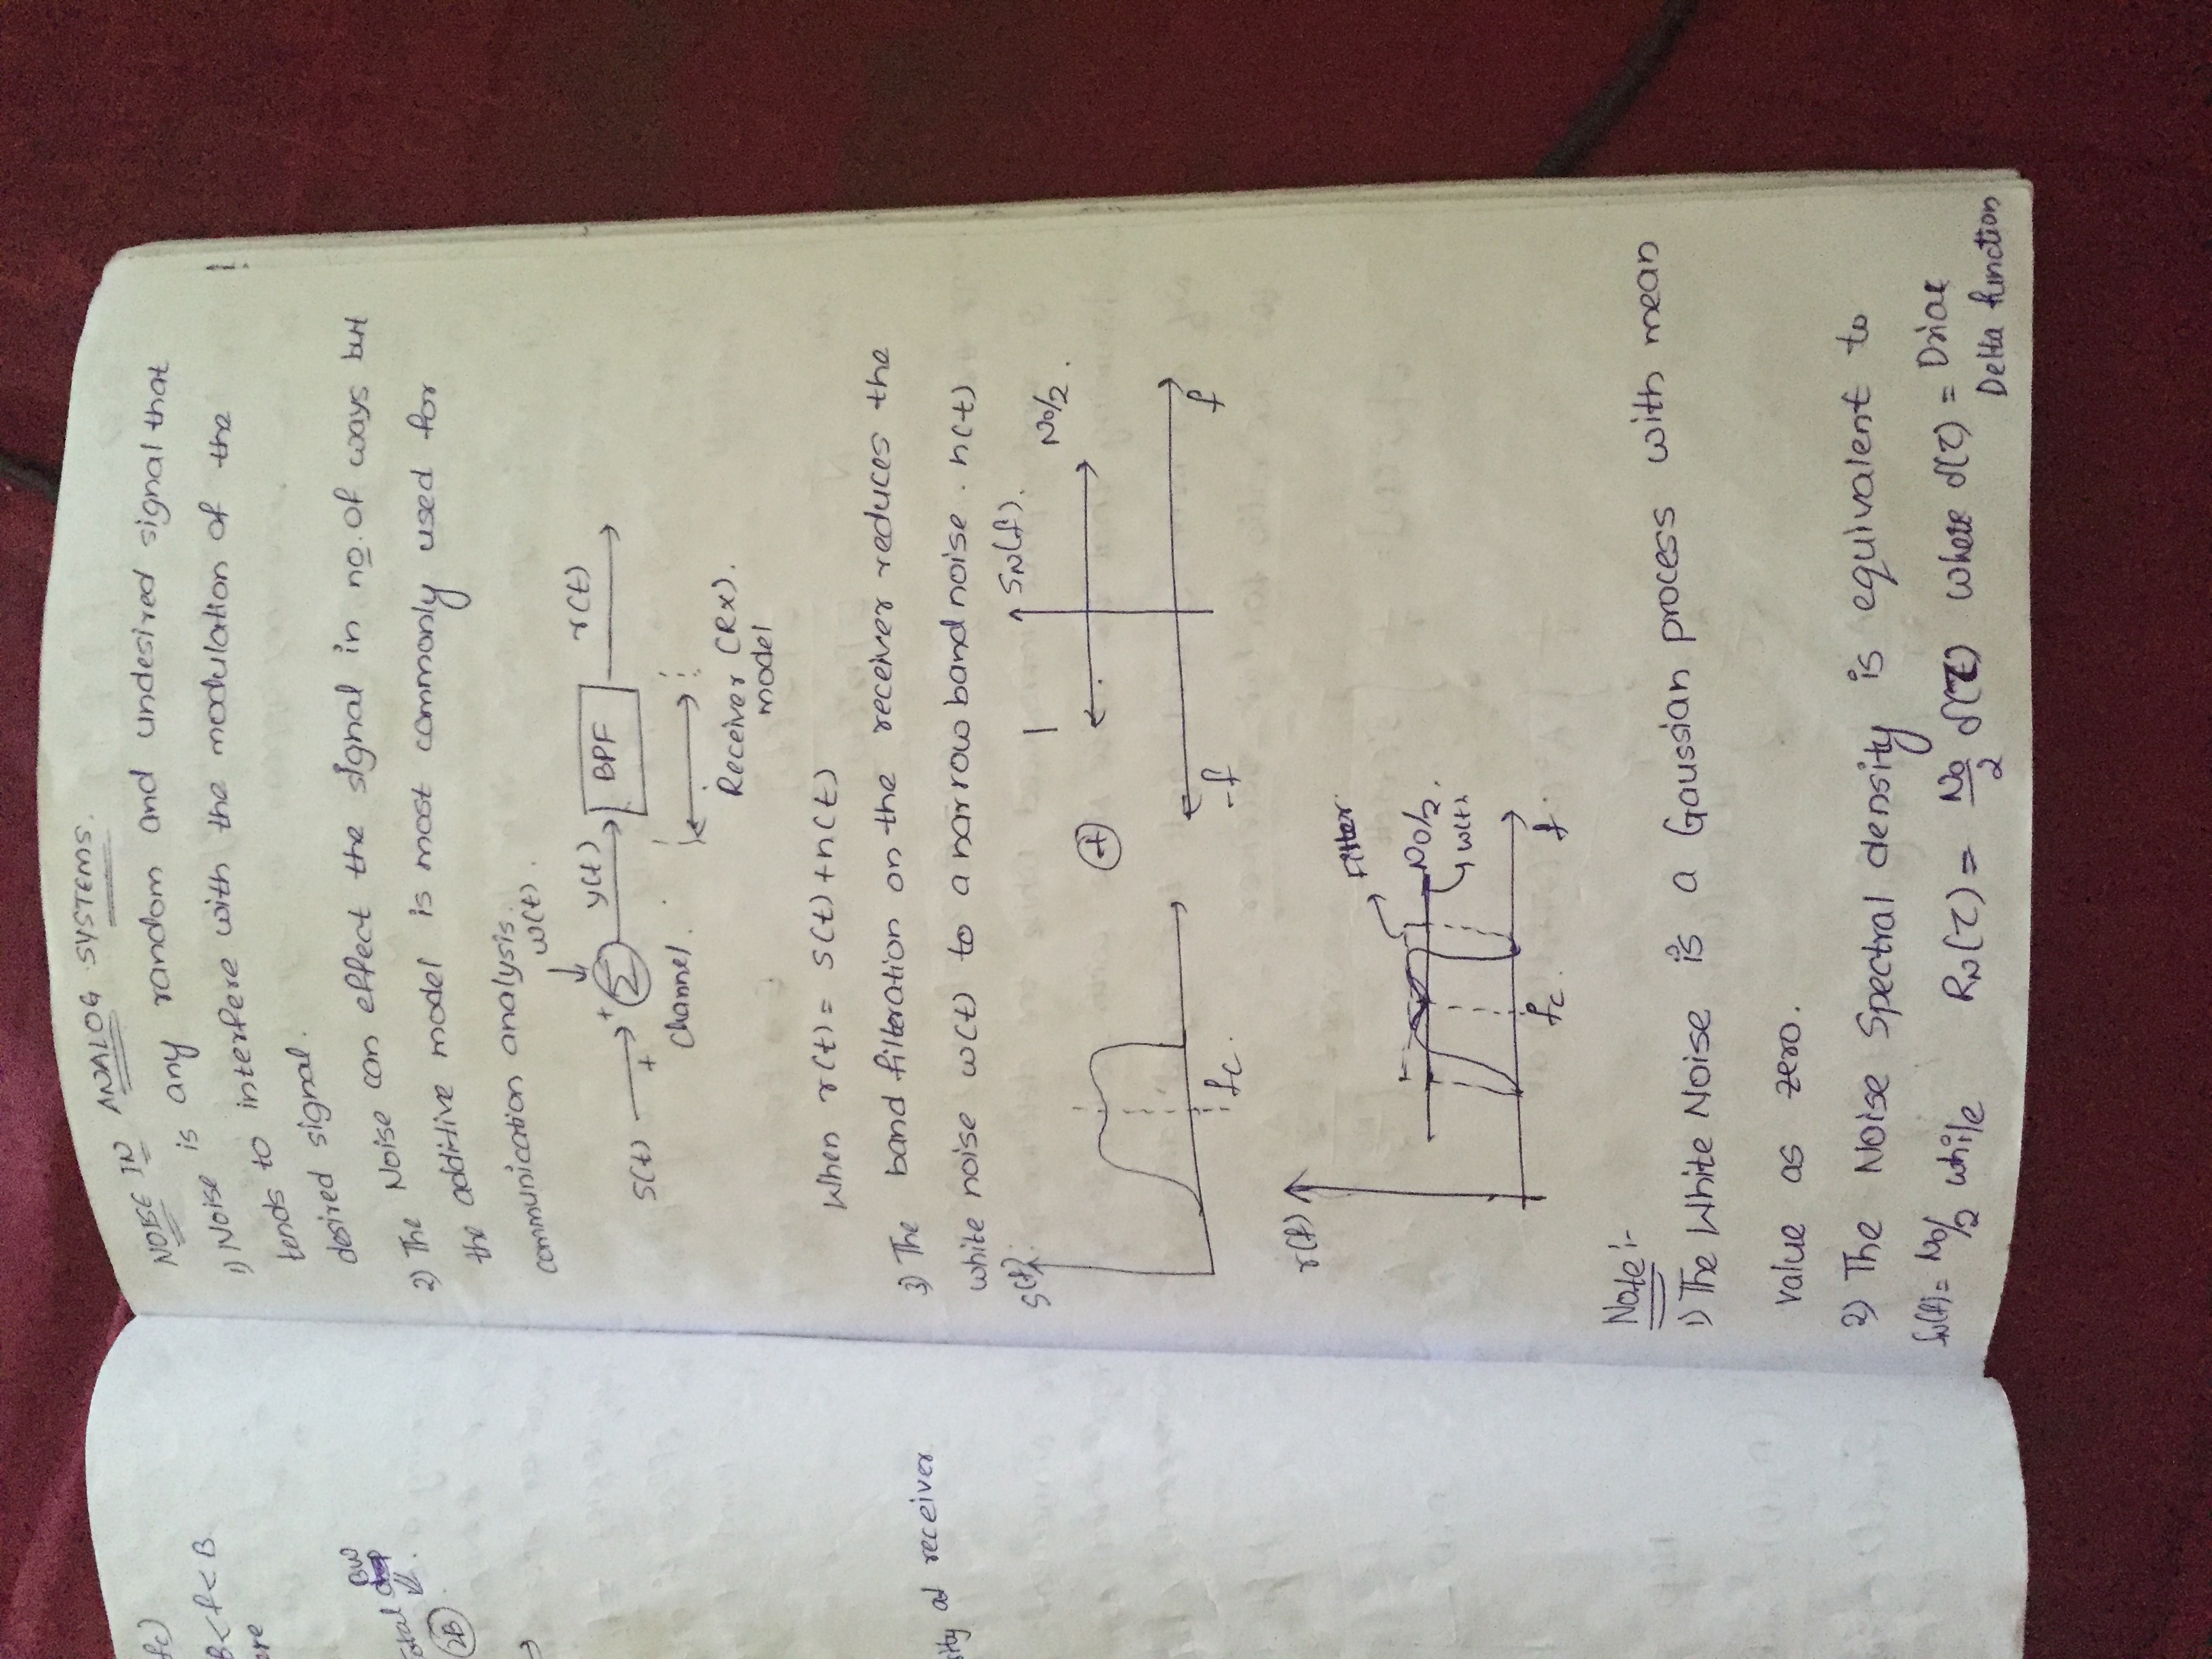 fc)
B<f<B
ere
BW
Total
2B
sity at receiver
NOISE IN ANALOG SYSTEMS.
1) Noise is any random and undesired signal that
tends to interfere with the modulation of the
desired signal.
2) The Noise can effect the signal in no. of ways but
the additive model is most commonly used for
communication analysis.
w(t).
S(t) + + Σ y(t) BPF r(t)
Channel.
Receiver (Rx).
model
When r(t) = S(t) + n(t)
3) The band filteration on the receiver reduces the
white noise w(t) to a narrow band noise. n(t)
S(f). + SN(f). No/2.
fc. -f f
r(f)
Filter
No/2.
w(t)
fc. f.
Note :-
1) The White Noise is a Gaussian process with mean
value as zero.
2) The Noise Spectral density is equivalent to
SN(f) = No/2 while RN(τ) = No/2 δ(τ) where δ(τ) = Driac
Delta function